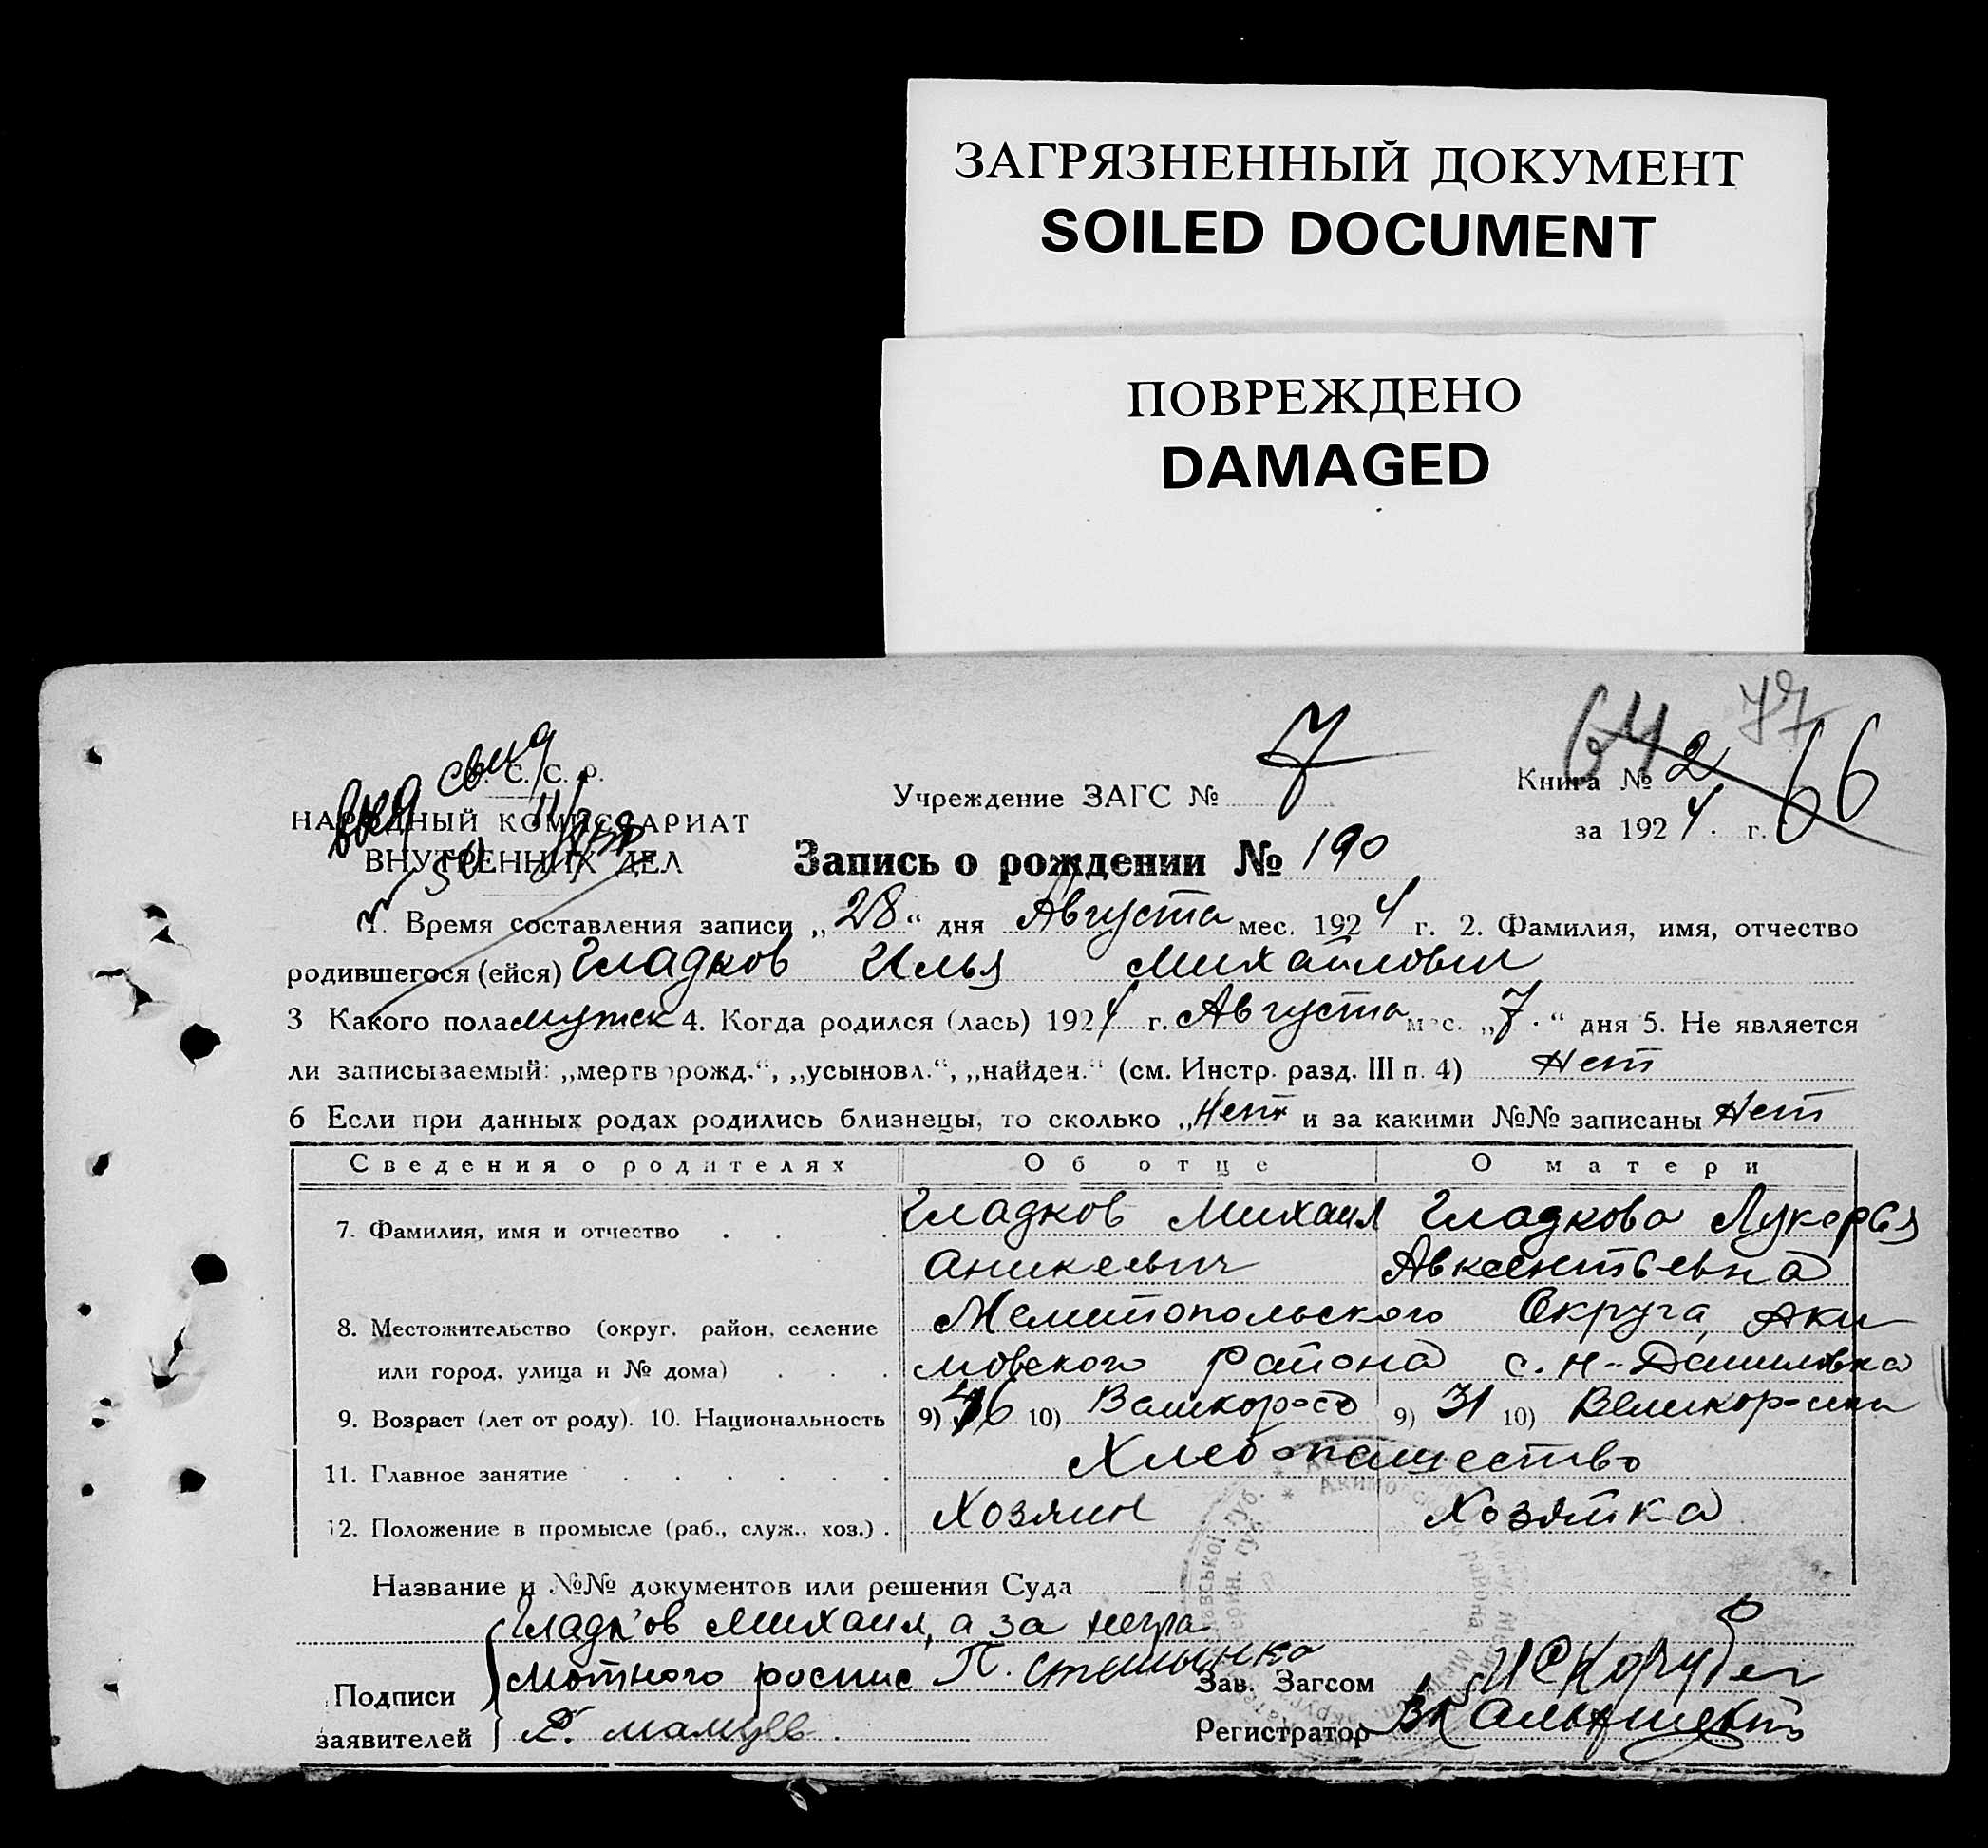 ЗАГРЯЗНЕННЫЙ ДОКУМЕНТ
SOILED DOCUMENT
ПОВРЕЖДЕНО
DAMAGED
64 77
66
С. С. Р.
НАРОДНЫЙ КОМИССАРИАТ
ВНУТРЕННИХ ДЕЛ
Учреждение ЗАГС № 7
Книга № 2
за 1924. г.
Запись о рождении № 190
1. Время составления записи „28“ дня Августа мес. 1924 г. 2. Фамилия, имя, отчество
родившегося (ейся) Гладков Илья Михайлович
3 Какого пола мужск 4. Когда родился (лась) 1924 г. Августа мес. „7.“ дня 5. Не является
ли записываемый: „мертворожд.“, „усыновл.“, „найден.“ (см. Инстр. разд. III п. 4) Нет
6 Если при данных родах родились близнецы, то сколько „Нет и за какими №№ записаны Нет
Сведения о родителях Об отце О матери
7. Фамилия, имя и отчество Гладков Михаил Гладкова Лукерья
Аникеевич Авксентьевна
8. Местожительство (округ, район, селение Мелитопольского Округа, Аки
или город, улица и № дома) мовского района с. Н-Даниловка
9. Возраст (лет от роду). 10. Национальность 9) 10) Великоросс 9) 31 10) Великоросска
11. Главное занятие Хлебопашество
12. Положение в промысле (раб., служ., хоз.) Хозяин Хозяйка
Название и №№ документов или решения Суда
Гладков Михаил, а за негра
мотного роспис П.
Подписи
заявителей
Зав. Загсом
Регистратор